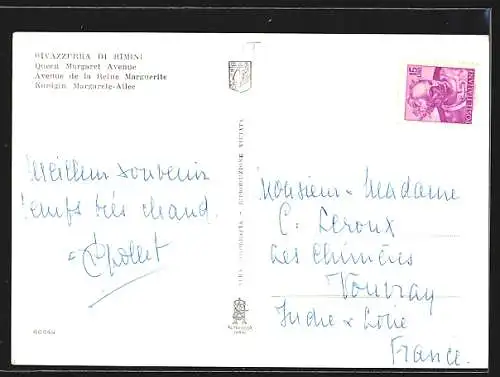 RIVAZZURRA DI RIMINI
Queen Margaret Avenue
Avenue de la Reine Marguerite
Königin Margarete-Allee
15
LIRE
POSTE ITALIANE
RIPRODUZIONE VIETATA
Meilleur souvenir
temps très chaud.
Monsieur & Madame
C. Leroux
Les Chimères
Vouvray
Indre & Loire
France.